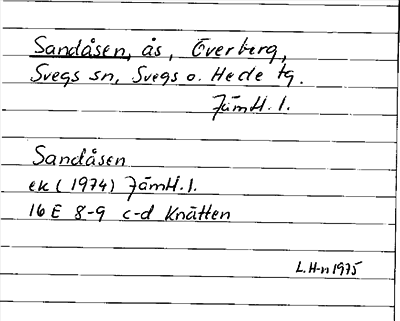 Sandåsen, ås, Överberg,
Svegs sn, Svegs o. Hede tg.
Jämtl. l.
Sandåsen
ek (1974) Jämtl. l.
16 E 8-9 c-d Knätten
L. H-n 1975